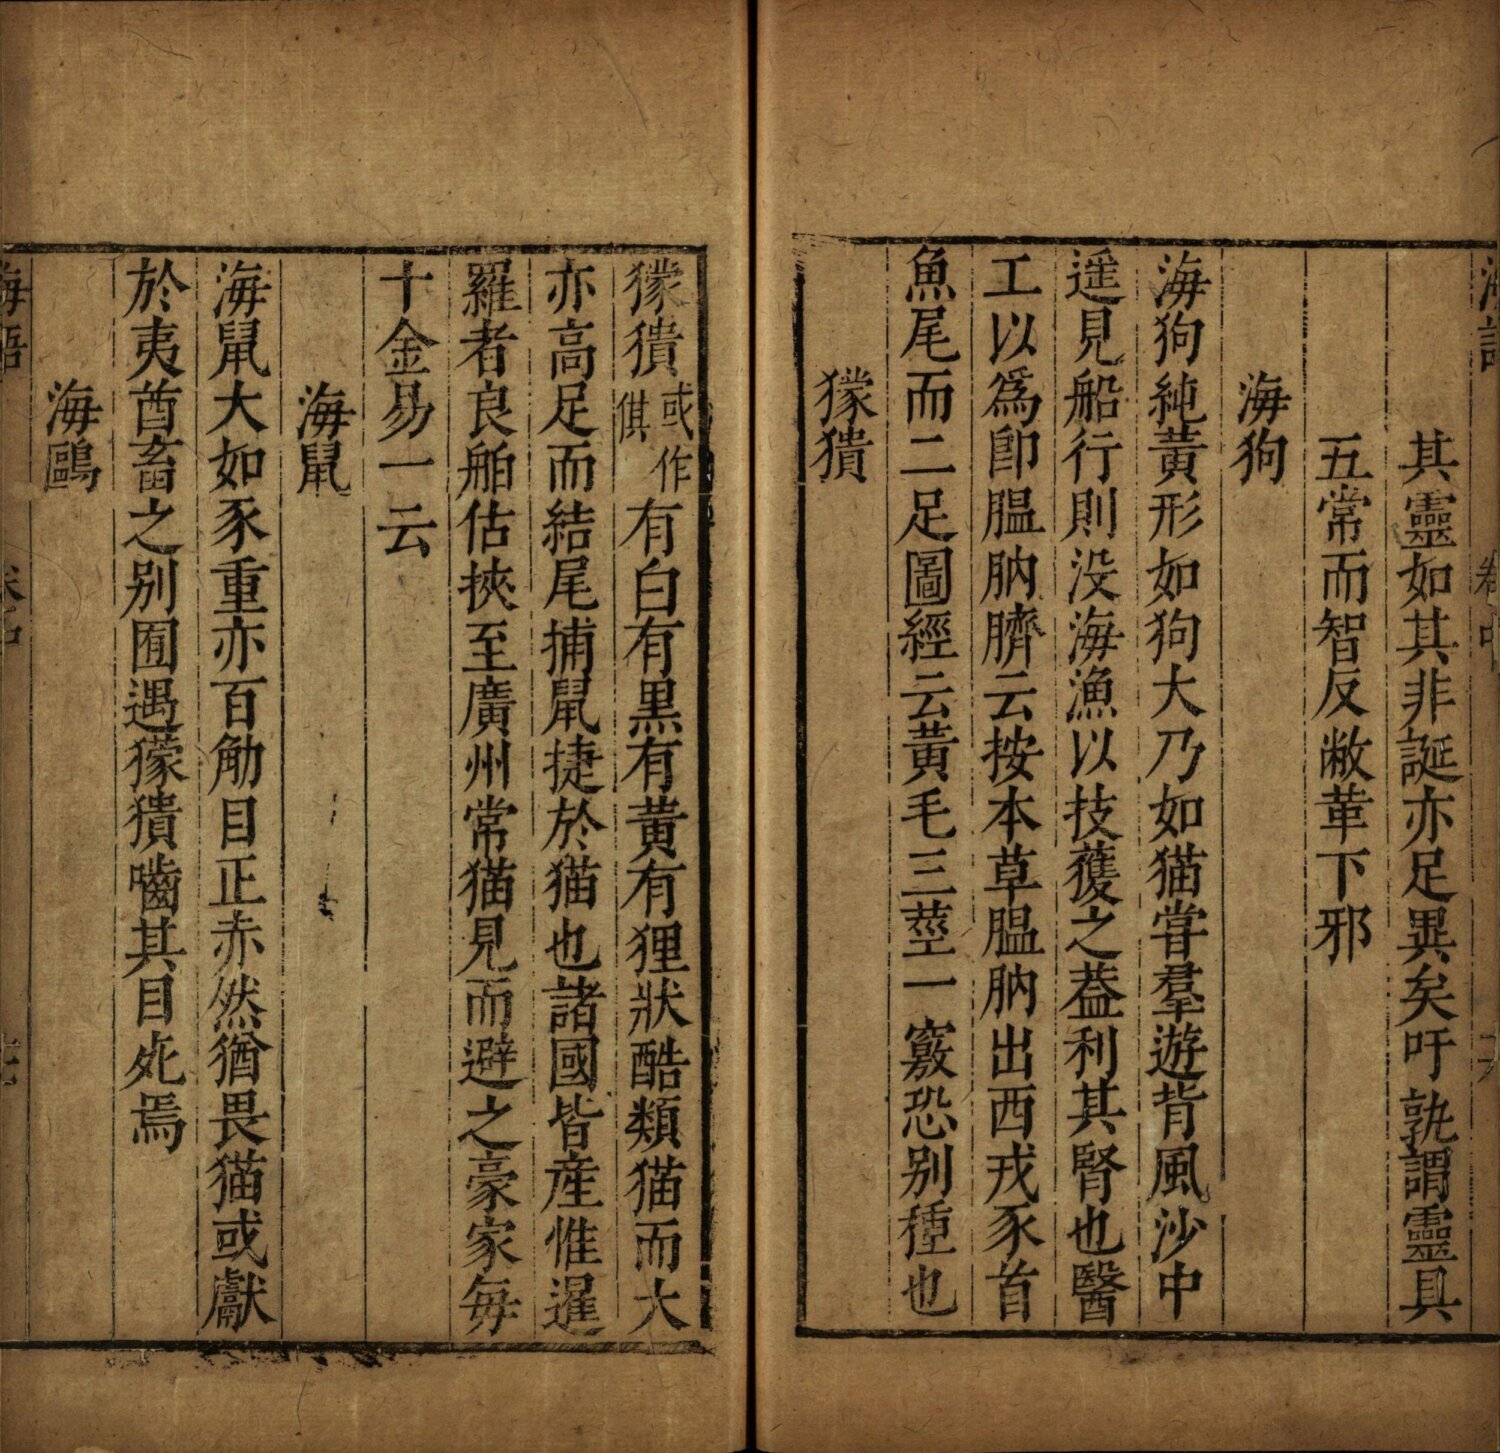 海語 卷中
其靈如其非誕亦足異矣吁孰謂靈具
五常而智反敝葦下邪
海狗
海狗純黃形如狗大乃如猫甞羣遊背風沙中
遥見船行則没海漁以技蒦之葢利其腎也醫
工以爲卽膃肭臍云按本草膃肭出西戎豕首
魚尾而二足圖經云黃毛三莖一竅恐别種也
獴𤡱
獴𤡱或作㒋有白有黒有黃有狸狀酷類猫而大
亦高足而結尾捕鼠捷於猫也諸國皆産惟暹
羅者良舶估挾至廣州常猫見而避之豪家每
十金易一云
海鼠
海鼠大如豕重亦百觔目正赤然猶畏猫或獻
於夷酋畜之别囿遇獴𤡱嚙其目死焉
海鷗
海語